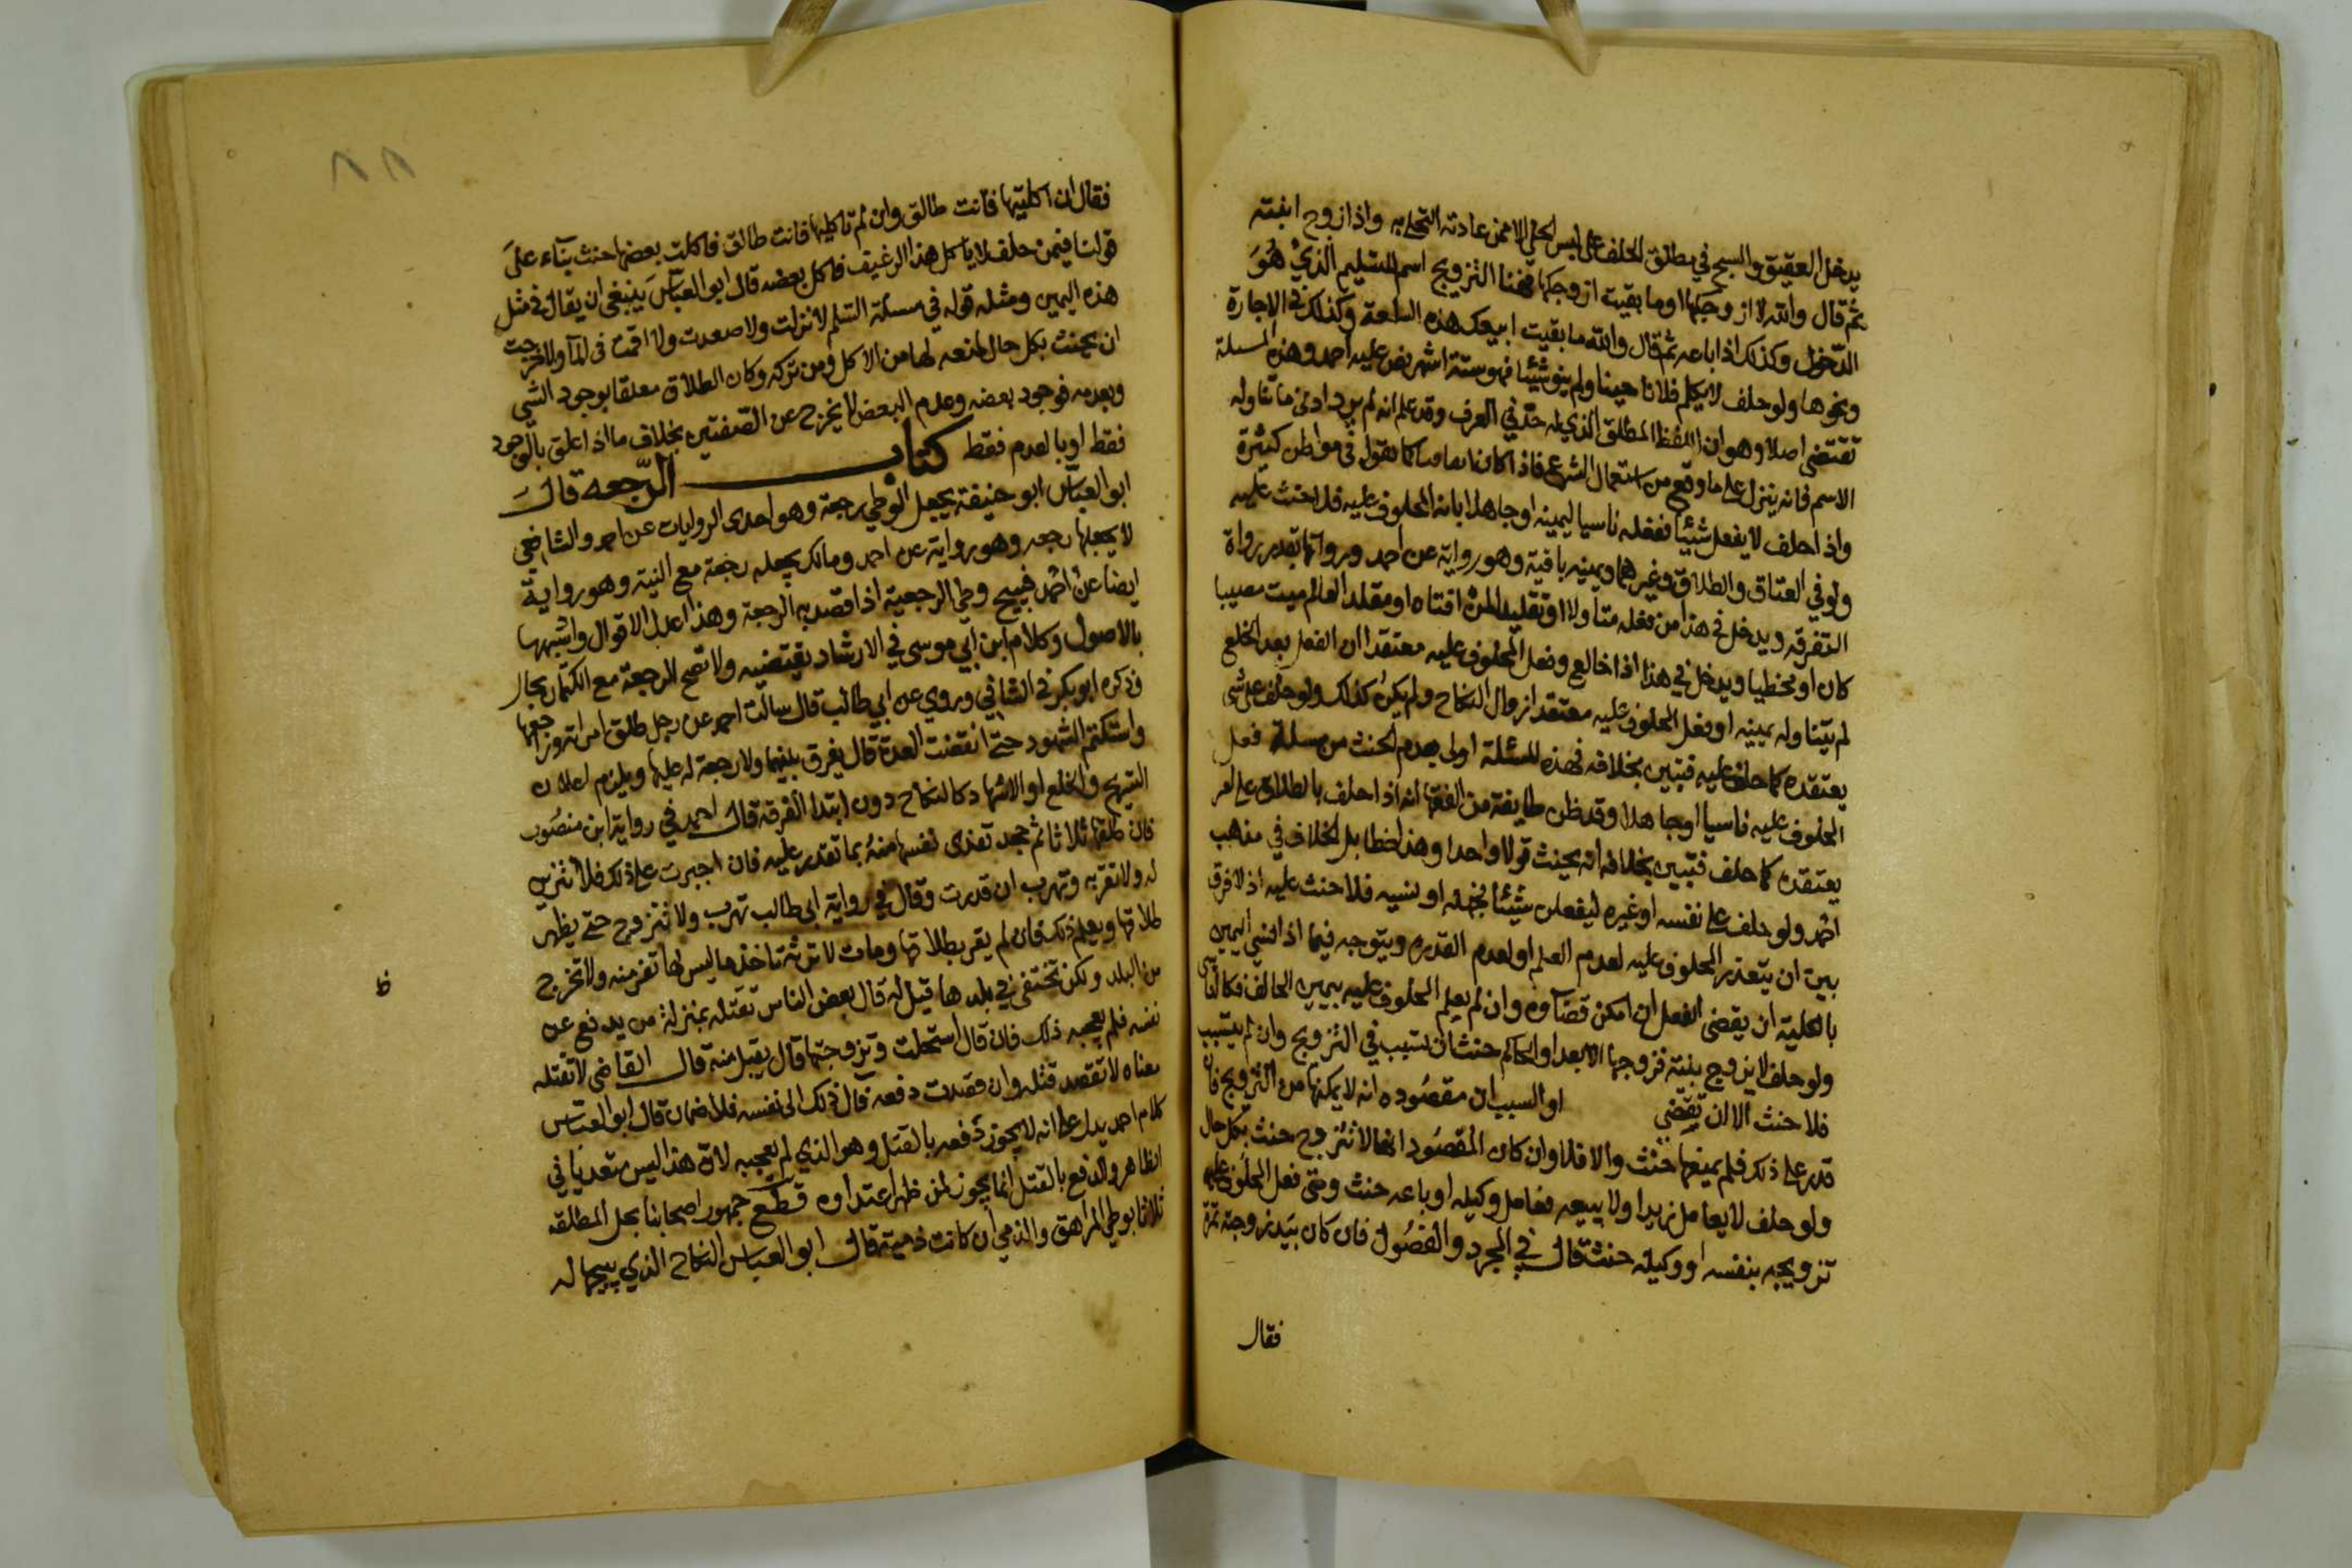 يدخل العقيق والسبح في مطلق الحلف على لبس الحلي الا ممن عادته التحلي به واذا زوج ابنته
ثم قال والله لا ازوجكها او ما بقيت ازوجكها فهنا التزويج اسم للتسليم الذي هُوَ
الدّخول وكذلك اذا باعه ثم قال والله ما بقيت ابيعك هذه السلعة وكذلك في الاجارة
ونحوها ولو حلف لا يكلم فلانا حينا ولم ينو شيئا فهو ستة اشهر نص عليه احمد وهذه المسئلة
تقتضي اصلا وهو ان اللفظ المطلق الذي له حدّ في العرف وقد علم انه لم يرد ادنى ما تناوله
الاسم فانه ينزل على ما وقع من استعمال الشرع فاذا كان كما نقول في مواطن كثيرة
واذا حلف لا يفعل شيئا ففعله ناسيا ليمينه او جاهلا بانه المحلوف عليه فلا حنث عليه
ولو في العتاق والطلاق وغيرهما ويمينه باقية وهو رواية عن احمد ورواتها بقدر رواة
التفرقه ويدخل في هذا من فعله متاولا او تقليدا لمن افتاه او مقلدا لعالم ميت مصيبا
كان او مخطيا ويدخل في هذا اذا خالع وفعل المحلوف عليه معتقدا ان الفعل بعد الخلع
لم يتناوله يمينه او فعل المحلوف عليه معتقدا زوال النكاح ولم يكن كذلك ولو حلف على شي
يعتقده كما حلف عليه فتبين بخلافه فهذه المسئلة اولى بعدم الحنث من مسلة فعل
المحلوف عليه ناسيا او جاهلا وقد ظن طايفة من الفقها انه اذا حلف بالطلاق على امر
يعتقده كما حلف فتبين بخلافه انه يحنث قولا واحدا وهذا خطا بل الخلاف في مذهب
احمد ولو حلف على نفسه او غيره ليفعلن شيئا فجهله او نسيه فلا حنث عليه اذ لا فرق
بين ان يتعذر المحلوف عليه لعدم العلم او لعدم القدره ويتوجه فيما اذا نسي اليمين
بالكلية ان يقضي الفعل ان امكن قضاوه وان لم يعلم المحلوف عليه بيمين الحالف فكالناسي
ولو حلف لا يزوج بنته فزوجها الابعد او الحاكم حنث ان تسبب في التزويج وان لم يتسبب
فلا حنث الا ان تقتضي او السبب ان مقصُوده انه لا يمكنها من التزويج فان
قدر على ذلك فلم يمنعها حنث والا فلا وان كان المقصُود انها لا تتزوج حنث بكل حال
ولو حلف لا يعامل زيدا ولا يبيعه فعامل وكيله او باعه حنث ومتى فعل المحلوف عليه
تزويجه بنفسه او وكيله حنث قال في المجرد والفصُول فان كان بيد زوجته تمرة
فقال
٨٨
فقال ان اكلتيها فانت طالق وان لم تاكليها فانت طالق فاكلت بعضها حنث بناء علىَ
قولنا فيمن حلف لا ياكل هذا الرغيف فاكل بعضه قال ابو العباسَ ينبغي ان يقال في مثل
هذه اليمين ومثله قوله في مسئلة السّلم لا نزلت ولا صعدت ولا اقمت في الماء ولا خرجت
ان يحنث بكل حال لمنعه لها من الاكل ومن تركه وكان الطلاق معلقا بوجود الشي
وبعدمه فوجود بعضه وعدم البعض لا يخرج عن الصّفتين بخلاف ما اذا علق بالوجود
فقط او بالعدم فقط كتاب الرّجعه قالَ
ابو العبّاس ابو حنيفة يجعل الوطي رجعة وهو احدى الروايات عن احمد والشافعي
لا يجعلها رجعه وهو رواية عن احمد ومالك يجعله رجعة مع النية وهو رواية
ايضا عن احمد فيبيح وطي الرجعية اذا قصد به الرجعة وهذا اعدل الاقوال واشبهها
بالاصول وكلام ابن ابي موسى في الارشاد يقتضيه ولا تصح الرجعة مع الكتمان بحال
وذكره ابو بكر في الشافي وروي عن ابي طالب قال سالت احمد عن رجل طلق امراته وراجعها
واستكتم الشهود حتى انقضت العدة قال يفرق بينهما ولا رجعة له عليها ويلزم اعلان
التسريح والخلع او الاشهاد كالنكاح دون ابتدا الفرقه قال احمد في رواية ابن منصُور
فان طلقها ثلاثا ثم جحد تفدي نفسها منهُ بما تقدر عليه فان اجبرت على ذلك فلا تتزين
له ولا تقربه وتهرب ان قدرت وقال في رواية ابي طالب تهرب ولا تتزوج حتى يظهر
طلاقها ويعلم ذلك فان لم يقر بطلاقها ومات لا ترثه تاخذ ما ليس لها تفر منه ولا تخرج
من البلد ولكن تختفي في بلدها قيل له قال بعض الناس تقتله بمنزلة من يدفع عن
نفسه فلم يعجبه ذلك فان قال استحللت وتزوجتها قال يقبل منه قال القاضي لا تقتله
معناه لا تقصد قتله وان قصدت دفعه فآل ذلك الى نفسه فلا ضمان قال ابو العبّاس
كلام احمد يدل على انه لا يجوز دفعه بالقتل وهو الذي لم يعجبه لان هذا ليس متعديا في
الظاهر والدفع بالقتل انما يجوز لمن ظهر اعتداوه قطع جمهور اصحابنا بحل المطلقه
ثلاثا بوطي المراهق والذمي ان كانت ذمية قال ابو العباس النكاح الذي يبيحها له
ظ